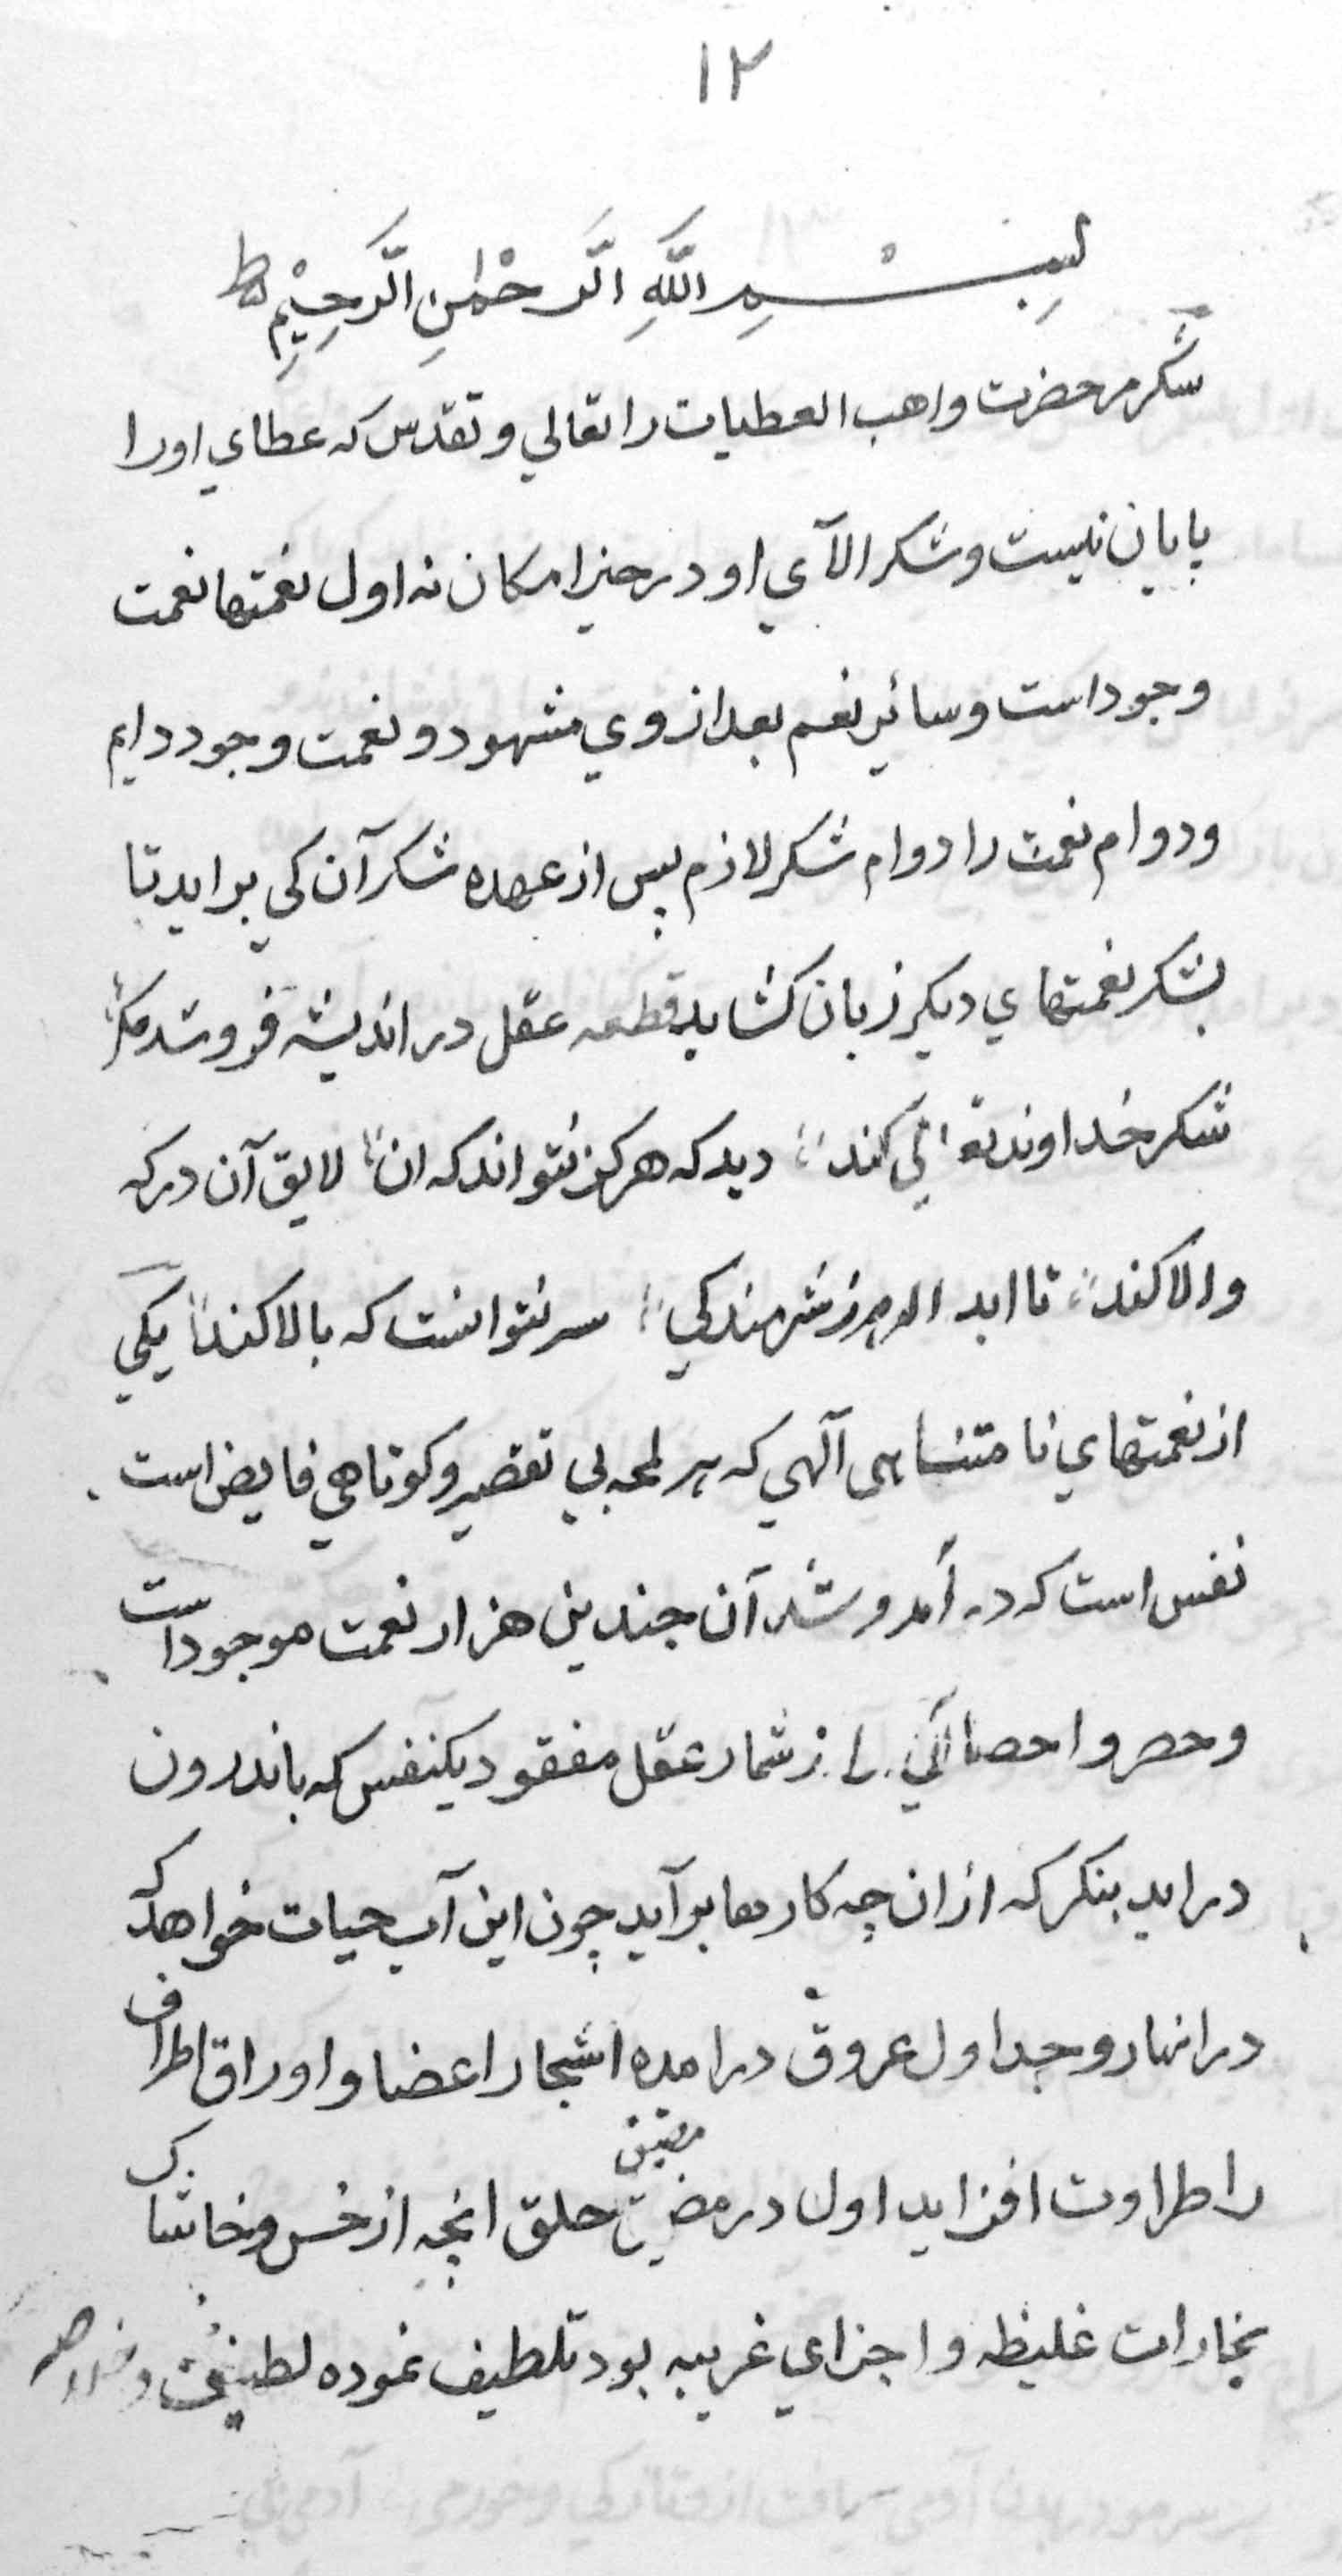 ۱۲
بِسْمِ اللَّهِ الرَّحْمٰنِ الرَّحِيْمِ ط
شكر مر حضرت واهب العطيات را تعالي و تقدس كه عطاي او را
پايان نيست و شكر الآي او در حيز امكان نه اول نعمتها نعمت
وجود است و سائر نعم بعد از وي مشهود و نعمت وجود دايم
و دوام نعمت را دوام شكر لازم پس از عهده شكر آن كي برايد تا
بشكر نعمتهاي ديكر زبان كشايد قطعه عقل در انديشه فرو شد مكر
شكر خداوند تعالي كند ديد كه هركز نتواند كه ان لايق آن دركه
والا كند تا ابد الدهر ز شرمندكي سر نتوانست كه بالا كند يكي
از نعمتهاي نامتناهي آلهي كه هر لمحه بي تقصير و كوتاهي فايض است
نفس است كه در آمد و شد آن چندين هزار نعمت موجود است
و حصر و احصائي از شمار عقل مفقود يكنفس كه باندرون
در ايد بنكر كه ازان چه كارها برآيد چون اين آب حيات خواهد كه
در انهار و جداول عروق در امده اشجار اعضا و اوراق اطراف
را طراوت افزايد اول در مضيق حلق انچه از خس و خاشاك
بخارات غليظه و اجزاي غريبه بود تلطيف نموده لطيف و